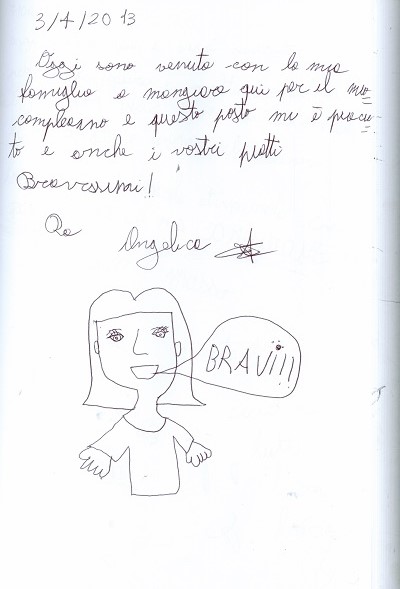 3/4/2013
Oggi sono venuta con la mia
famiglia a mangiare qui per il mio
compleanno e questo posto mi è piaciu-
to e anche i vostri piatti
Bravissimi!
Da
Angelica
BRAVI!!!